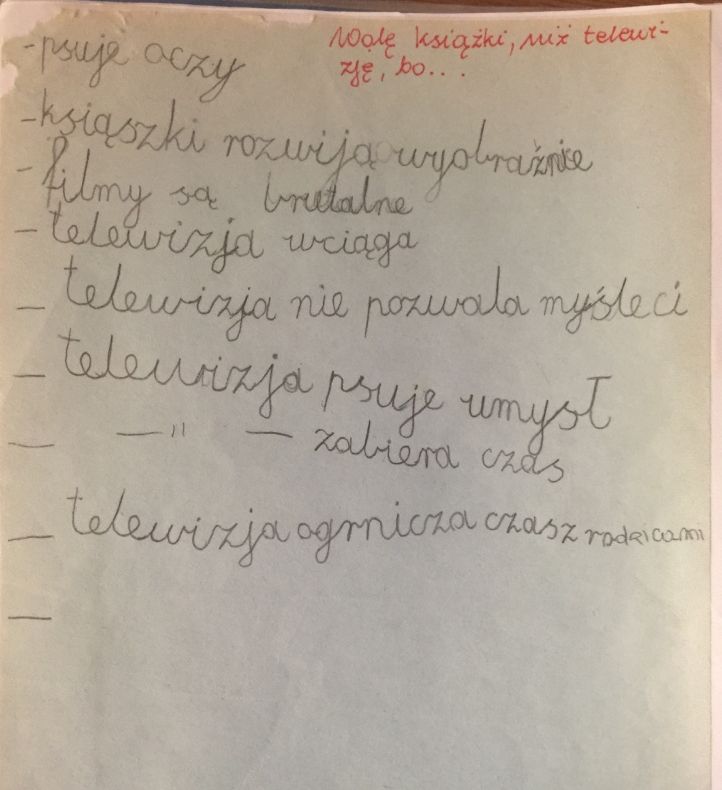 Wolę książki, niż telewi-
zję, bo...
- psuje oczy
- książki rozwiją wyobraźnie
- filmy są brutalne
- telewizja wciąga
- telewizja nie pozwala myśleci
- telewizja psuje umysł
- —"— zabiera czas
- telewizja ogrnicza czas z rodzicami
-